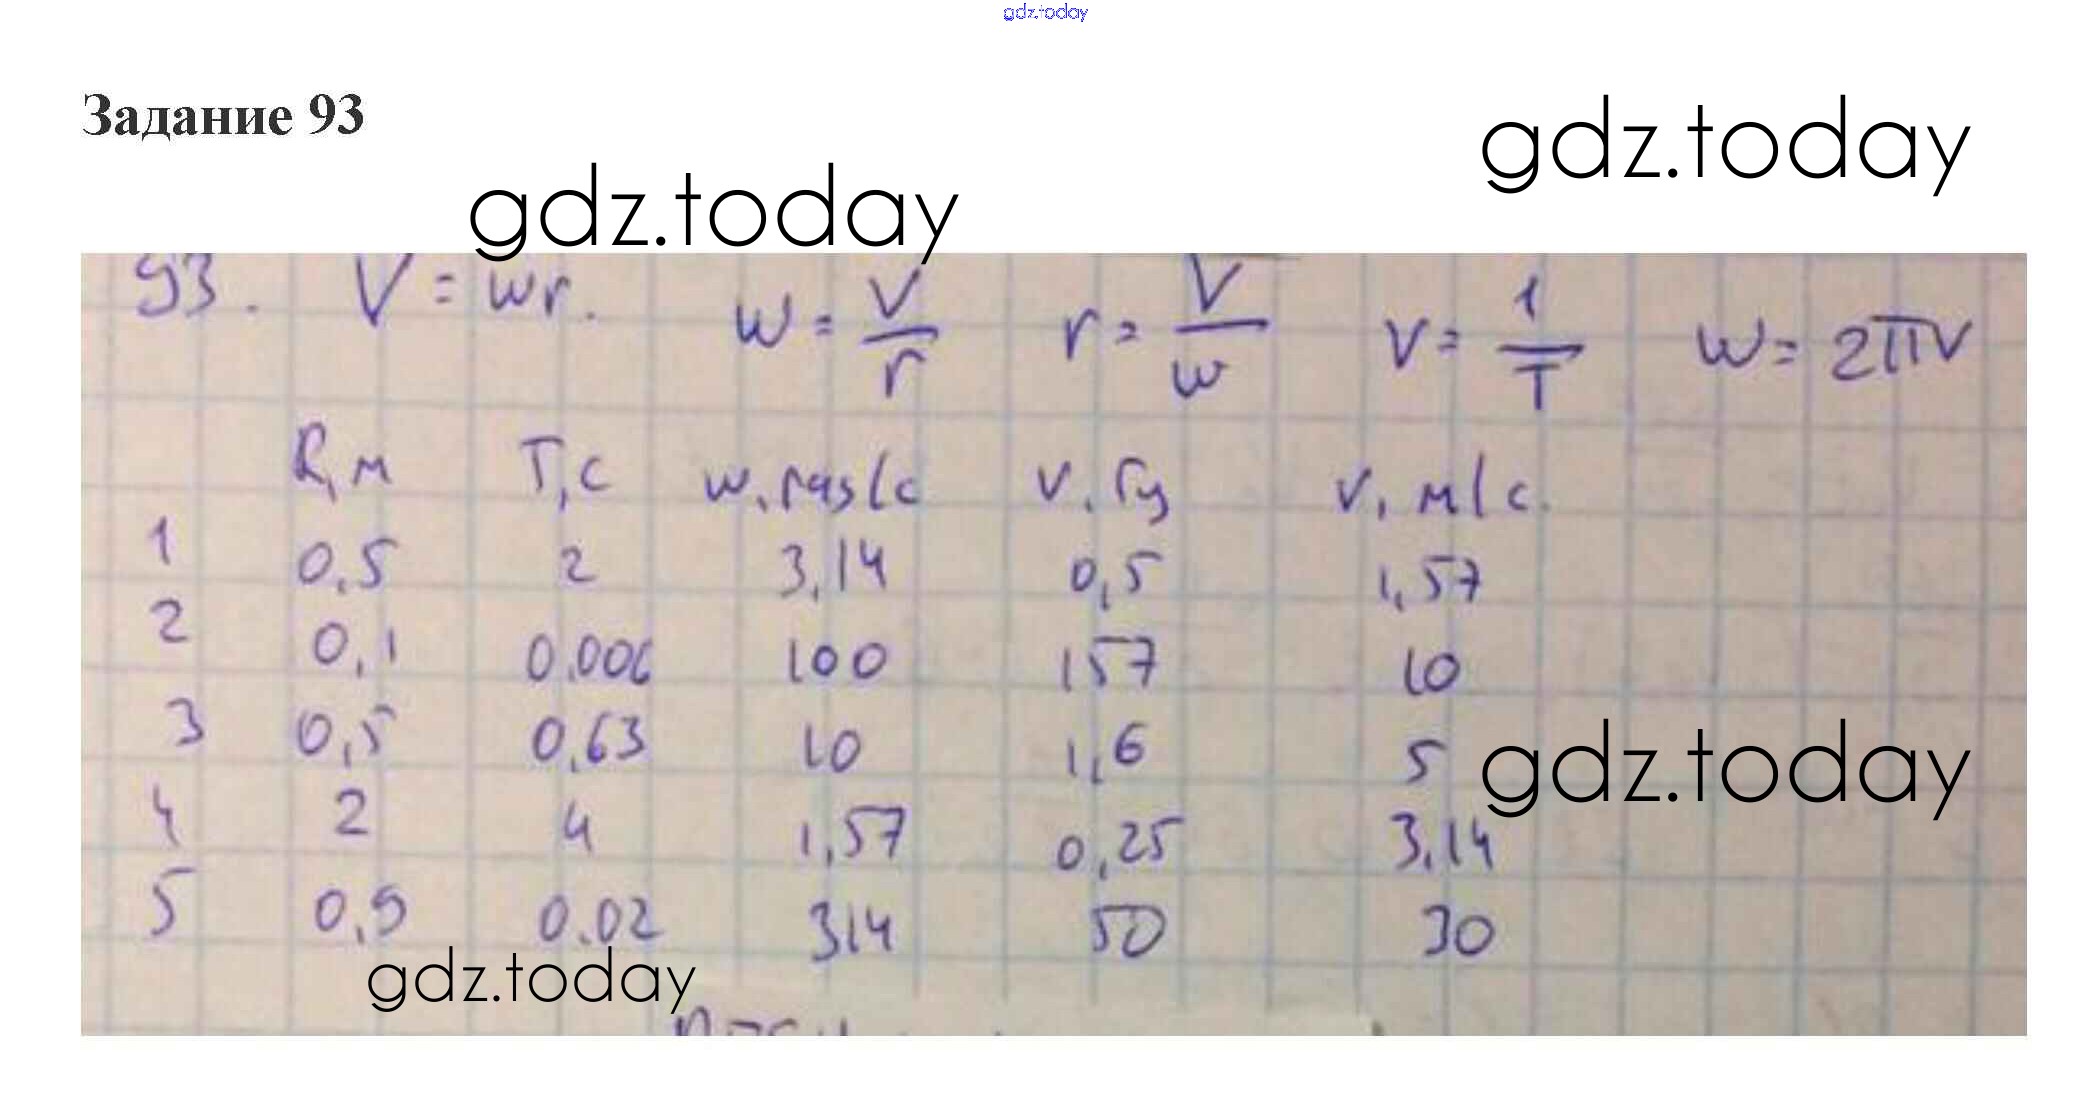 gdz.today
Задание 93
gdz.today
gdz.today
93. V = wr. w = V/r r = V/w ν = 1/T w = 2πν
R, м T, с w, rad/c ν, Гц v, м/с.
1 0,5 2 3,14 0,5 1,57
2 0,1 0.006 100 157 10
3 0,5 0,63 10 1,6 5
gdz.today
4 2 4 1,57 0,25 3,14
5 0,9 0.02 314 50 30
gdz.today